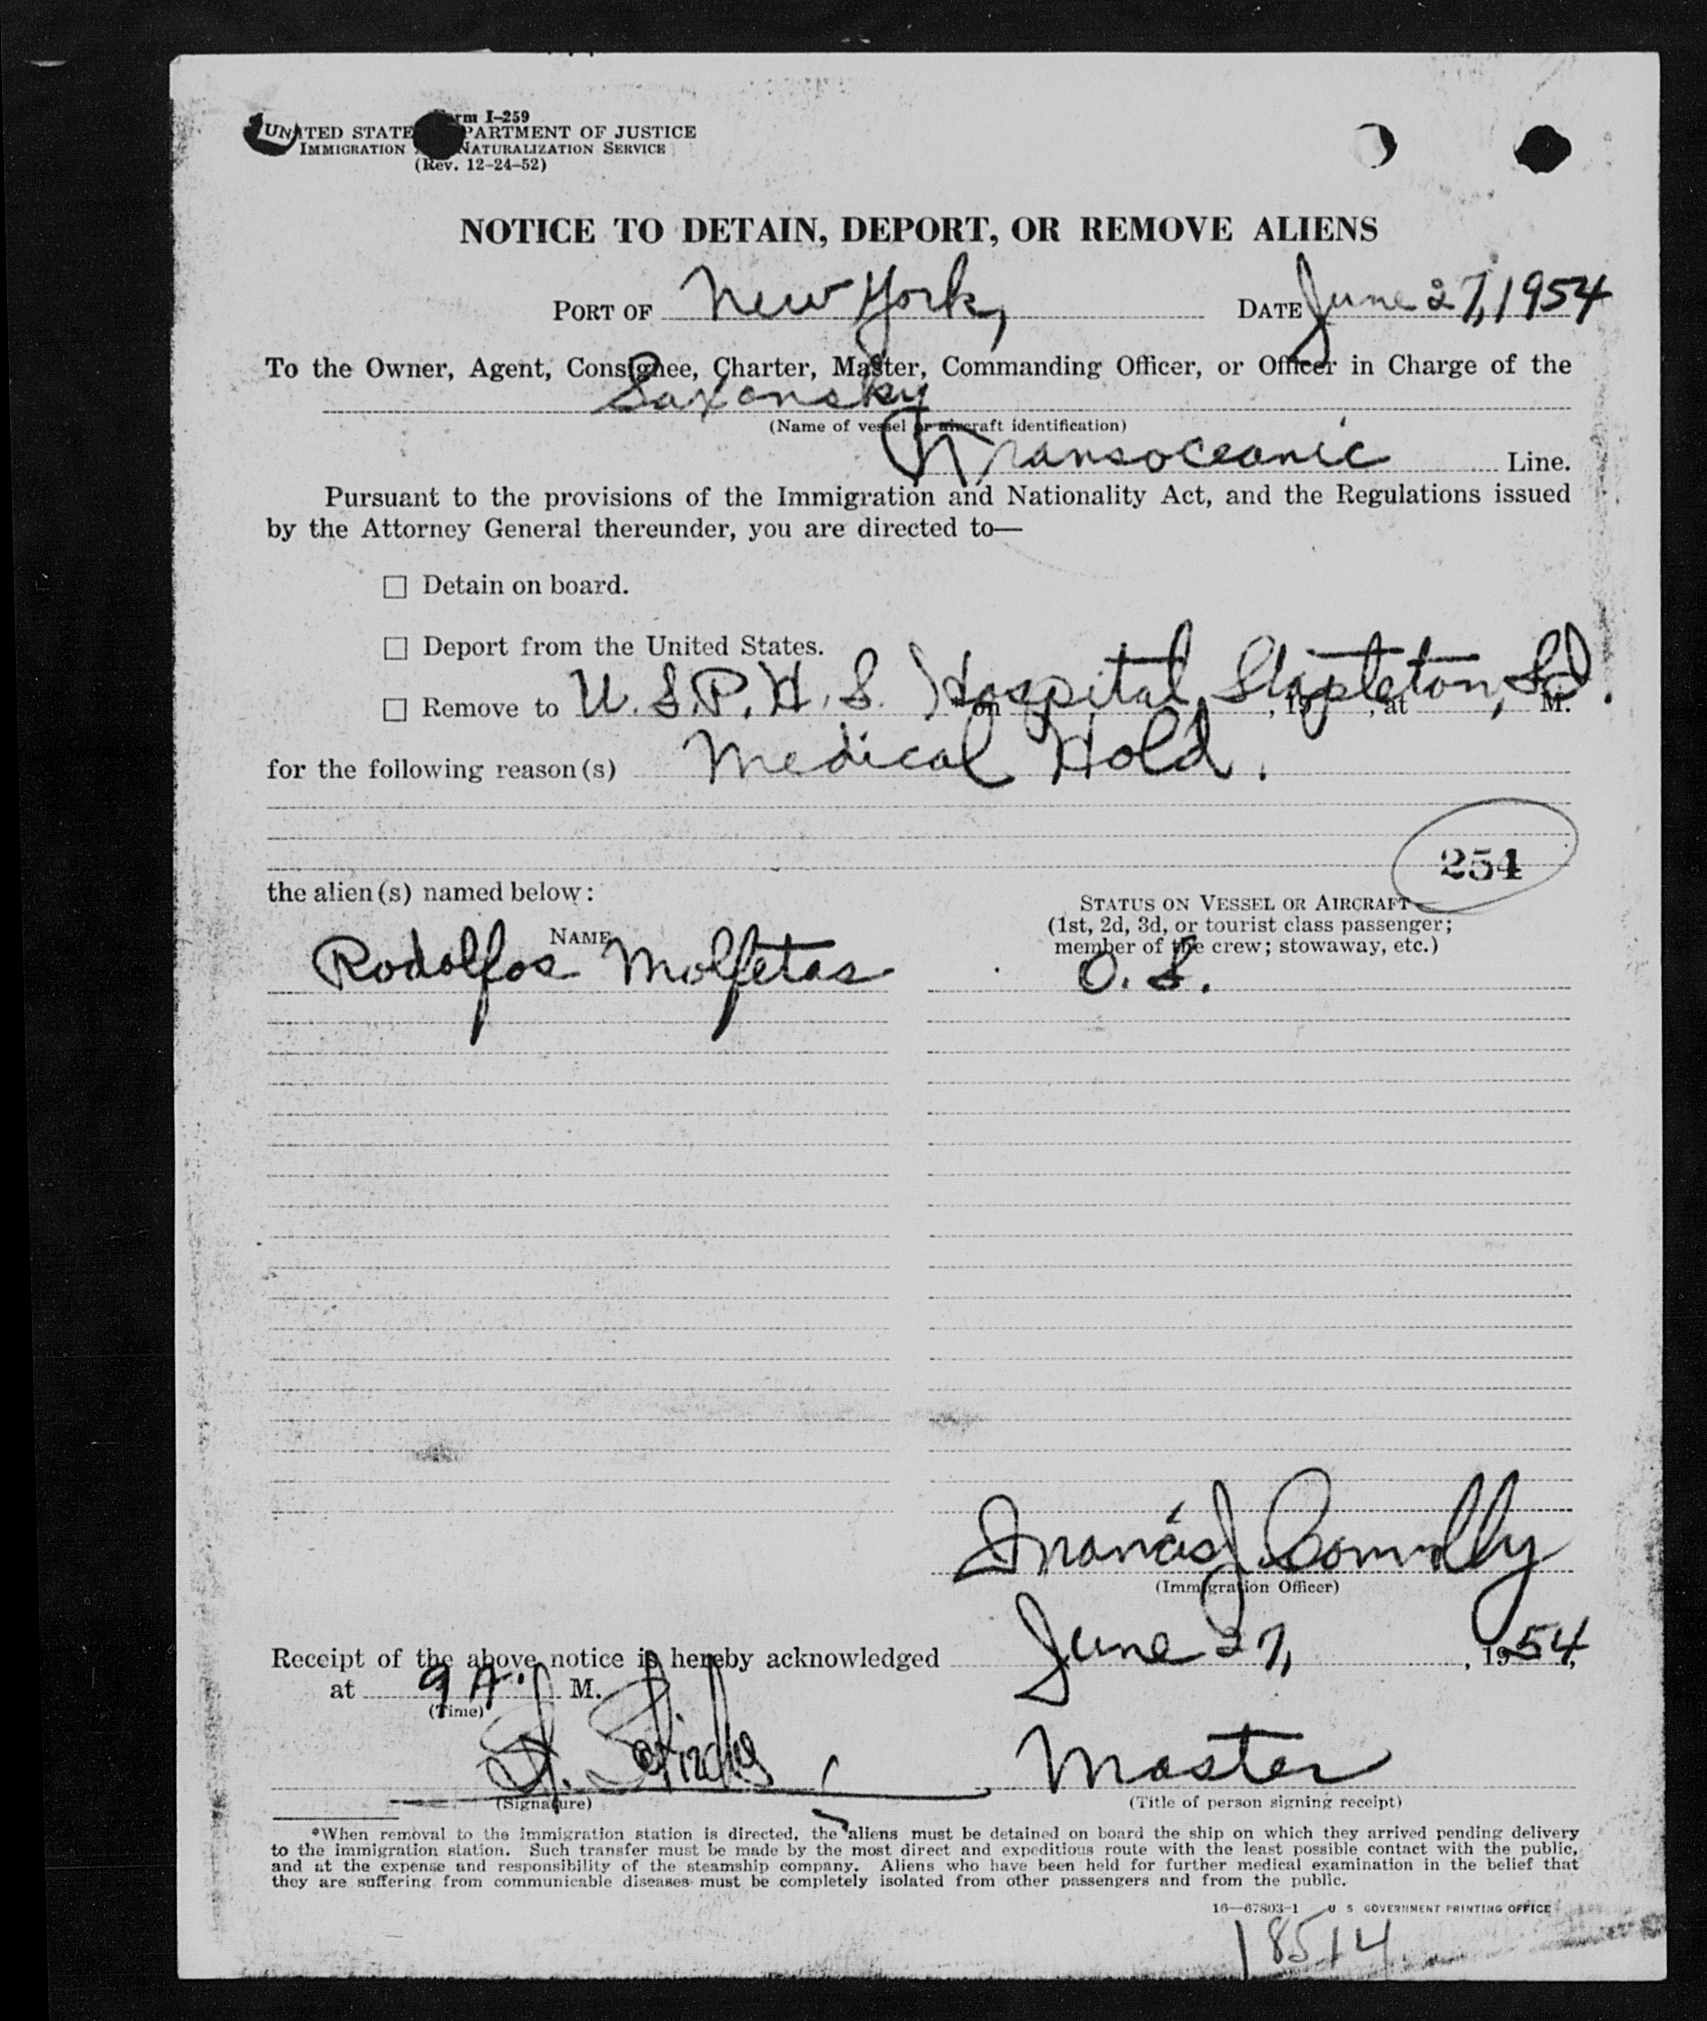 Form I-259
UNITED STATES DEPARTMENT OF JUSTICE
IMMIGRATION AND NATURALIZATION SERVICE
(Rev. 12-24-52)
NOTICE TO DETAIN, DEPORT, OR REMOVE ALIENS
PORT OF New York, DATE June 27, 1954
To the Owner, Agent, Consignee, Charter, Master, Commanding Officer, or Officer in Charge of the
Saxonsky
(Name of vessel or aircraft identification)
Transoceanic Line.
Pursuant to the provisions of the Immigration and Nationality Act, and the Regulations issued
by the Attorney General thereunder, you are directed to—
☐ Detain on board.
☐ Deport from the United States.
☐ Remove to U.S.P.H.S. Hospital, Stapleton, S.I. on , 19 , at M.
for the following reason(s) Medical Hold.
254
the alien(s) named below:
STATUS ON VESSEL OR AIRCRAFT
(1st, 2d, 3d, or tourist class passenger;
NAME member of the crew; stowaway, etc.)
Rodolfos Molfetas O.S.
Francis J. Connolly
(Immigration Officer)
Receipt of the above notice is hereby acknowledged June 27, 1954,
at 9 A. M.
(Time)
Master
(Signature) (Title of person signing receipt)
*When removal to the immigration station is directed, the aliens must be detained on board the ship on which they arrived pending delivery
to the immigration station. Such transfer must be made by the most direct and expeditious route with the least possible contact with the public,
and at the expense and responsibility of the steamship company. Aliens who have been held for further medical examination in the belief that
they are suffering from communicable diseases must be completely isolated from other passengers and from the public.
16—67803-1 U S GOVERNMENT PRINTING OFFICE
18514